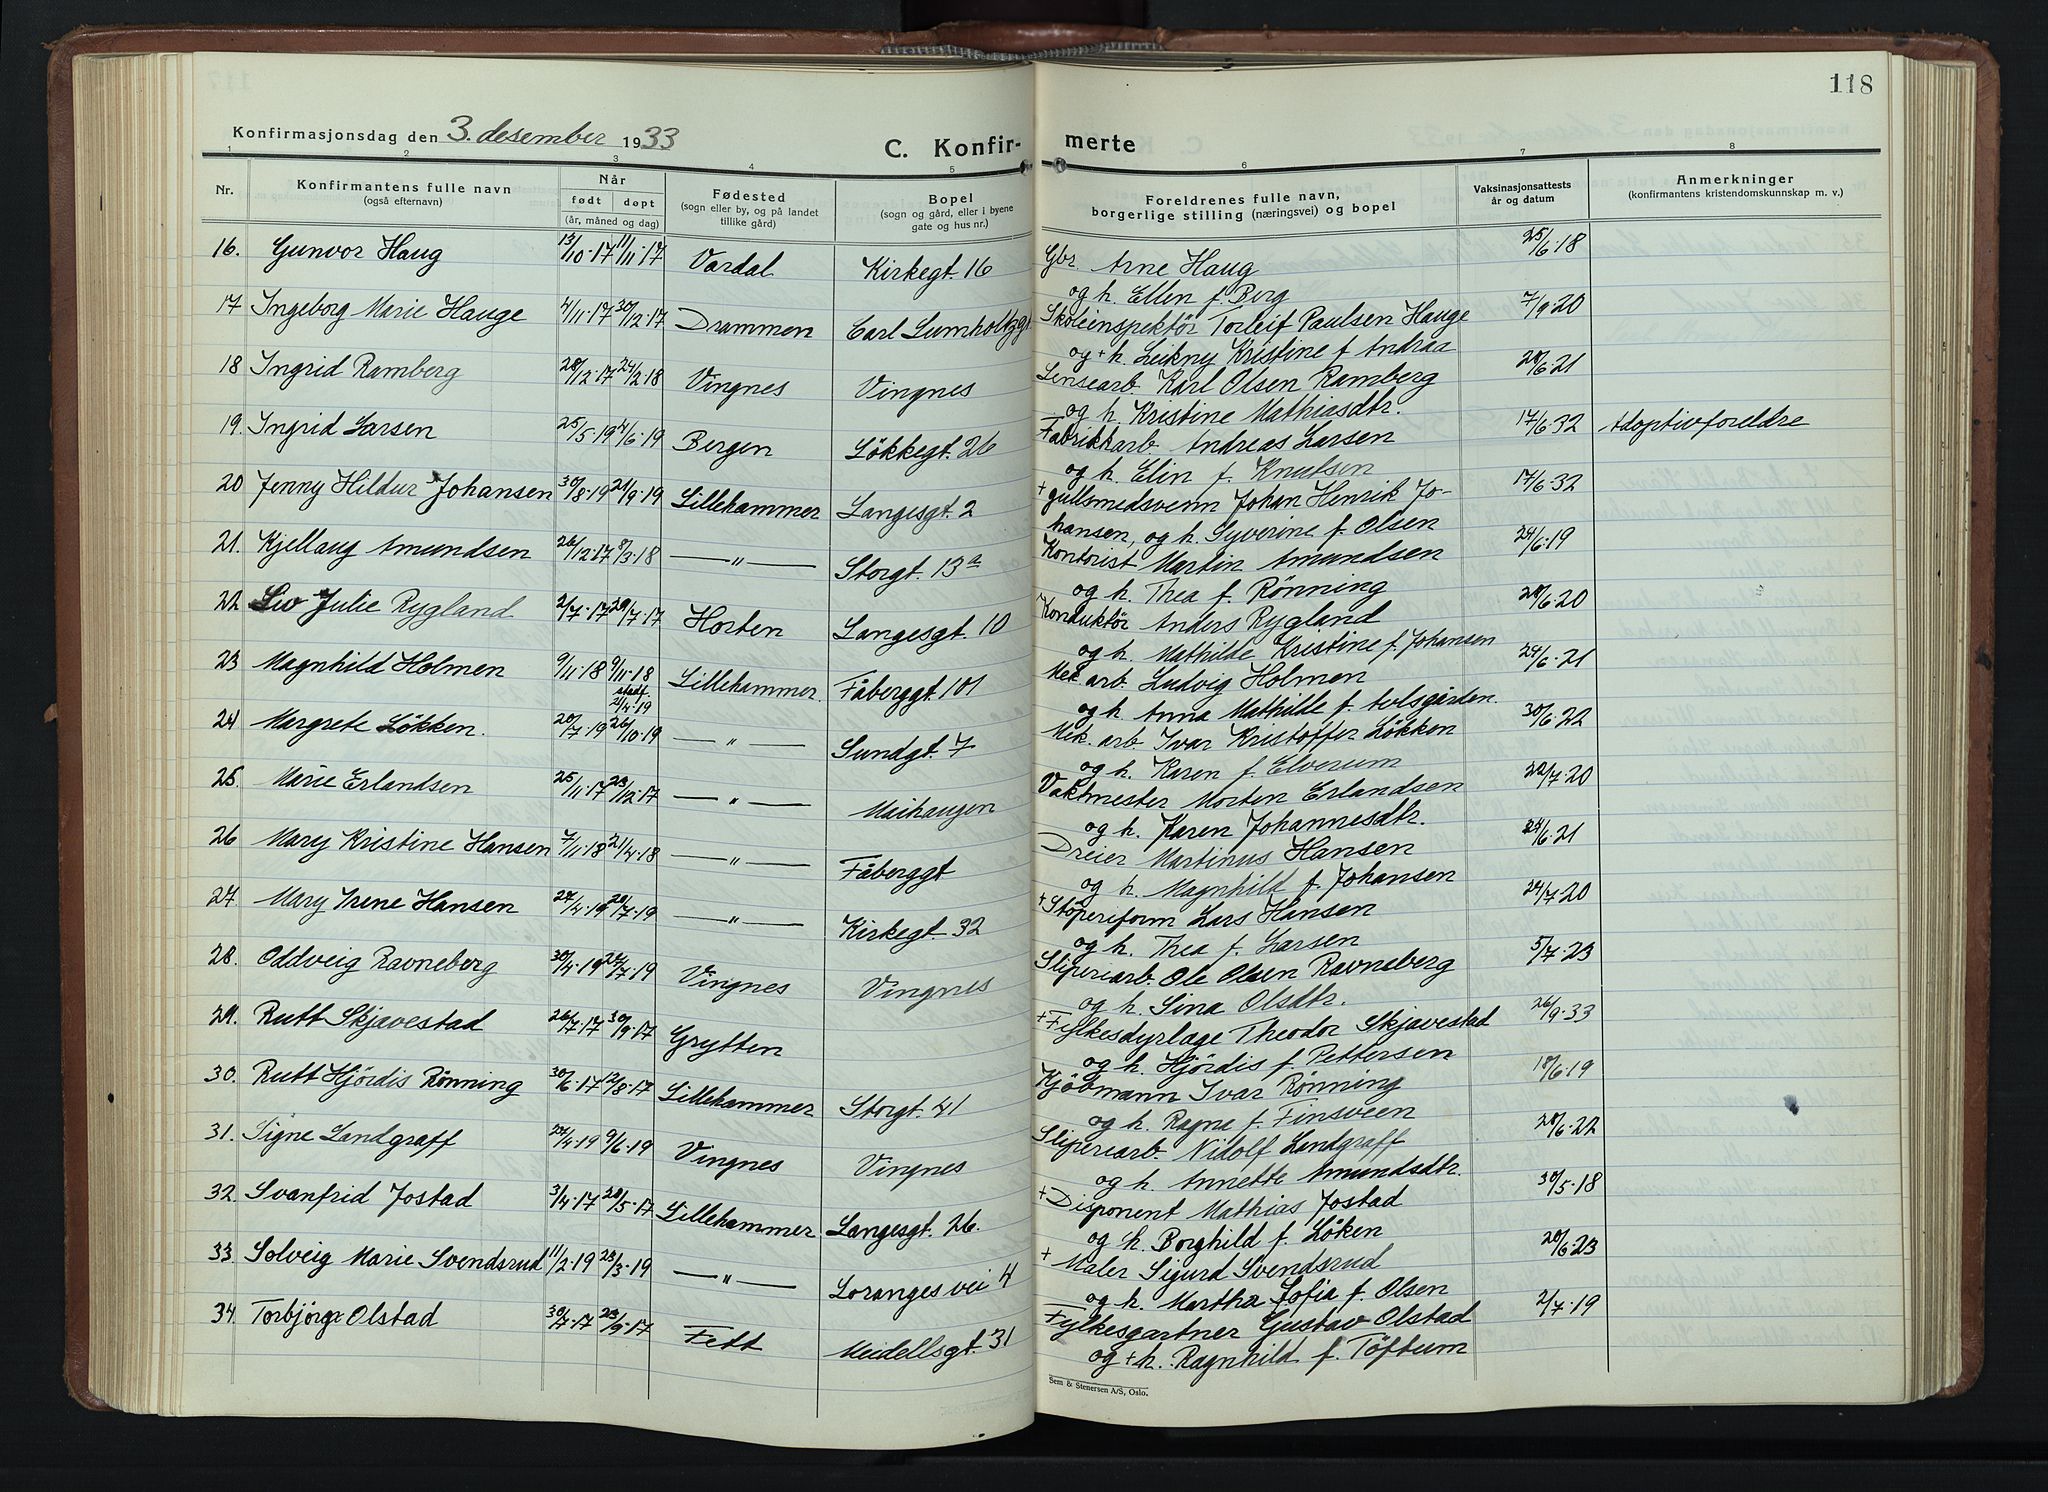 118
Konfirmasjonsdag den 3. desember 1933
C. Konfir- merte
1 2 3 4 5 6 7 8
Nr. Konfirmantens fulle navn (også efternavn) Når født døpt (år, måned og dag) Fødested (sogn eller by, og på landet tillike gård) Bopel (sogn og gård, eller i byene gate og hus nr.) Foreldrenes fulle navn, borgerlige stilling (næringsvei) og bopel Vaksinasjonsattests år og datum Anmerkninger (konfirmantens kristendomskunnskap m. v.)
16. Gunvor Haug 13/10.17 11/11.17 Vardal Kirkegt. 16 Gbr. Arne Haug 25/6.18
og h. Ellen f. Berg
17 Ingeborg Marie Hauge 4/11.17 30/12.17 Drammen Carl Lumholtzgt. Skoleinspektör Torleif Paulsen Hauge 7/9.20
og + h. Leikny Kristine f. Andraa
18 Ingrid Ramberg 28/12.17 24/2.18 Vingnes Vingnes Lensearb. Karl Olsen Ramberg 28/6.21
og h. Kristine Mathiasdtr.
19. Ingrid Larsen 25/5.19 4/6.19 Bergen Lökkegt. 26 Fabrikkarb. Andreas Larsen 17/6.32 Adoptivforeldre
og h. Elin f. Knutsen
20 Jenny Hildur Johansen 30/8.19 21/9.19 Lillehammer Langesgt. 2 + gullsmedsvenn Johan Henrik Jo- 17/6.32
hansen, og h. Syverine f. Olsen
21. Kjellaug Amundsen 26/12.17 8/3.18 —"— Storgt. 13a Kontorist Martin Amundsen 24/6.19
og h. Thea f. Rønning
22 Liv Julie Rygland 2/7.17 29/7.17 Horten Langesgt. 10 Konduktör Anders Rygland 28/6.20
og h. Mathilde Kristine f. Johansen
23 Magnhild Holmen 9/11.18 9/11.18 stadf. 21/4.19 Lillehammer Fåberggt. 101 Mek. arb. Ludvig Holmen 24/6.21
og h. Anna Mathilde f. Aulsgården
24 Margrete Løkken. 20/7.19 26/10.19 —"— Sundgt. 7 Mek. arb Ivar Kristoffer Løkken 30/6.22
og h. Karen f. Elverum
25. Marie Erlandsen 25/11.17 23/12.17 —"— Maihaugen Vaktmester Morten Erlandsen 22/7.20
og h. Karen Johannesdtr.
26 Mary Kristine Hansen 7/11.18 21/4.18 —"— Fåberggt Dreier Martinus Hansen 24/6.21
og h. Magnhild f. Johansen
27. Mary Irene Hansen 27/4.19 20/7.19 —"— Kirkegt. 32 + Støperiform Lars Hansen 24/7.20
og h. Thea f. Larsen
28. Oddveig Ravneberg 30/4.19 27/7.19 Vingnes Vingnes Sliperiarb. Ole Olsen Ravneberg 5/7.23
og h. Sina Olsdtr.
29. Rutt Skjavestad 26/7.17 30/9.17 Grytten + Fylkesdyrlæge Theodor Skjavestad 26/9.33
og h. Hjördis f. Pettersen
30. Rutt Hjördis Rønning 30/6.17 12/8.17 Lillehammer Storgt. 41 Kjöbmann Ivar Rønning 18/6.19
og h. Ragna f. Finsveen
31. Signe Landgraff 24/4.19 9/6.19 Vingnes Vingnes Sliperiarb. Nidolf Landgraff 28/6.22
og h. Annette Amundsdtr.
32. Svanfrid Jostad 3/4.17 28/5.17 Lillehammer Langesgt. 26. + Disponent Mathias Jostad 30/5.18
og h. Borghild f. Løken
33. Solveig Marie Svendsrud 11/2.19 23/3.19 —"— Loranges vei 4 + Maler Sigurd Svendsrud 28/6.23
og h. Martha Sofia f. Olsen
34. Torbjörg Olstad 30/7.17 23/9.17 Fett Meidellsgt. 31 Fylkesgartner Gustav Olstad 2/7.19
og + h. Ragnhild f. Töftum
Sem & Stenersen A/S, Oslo.